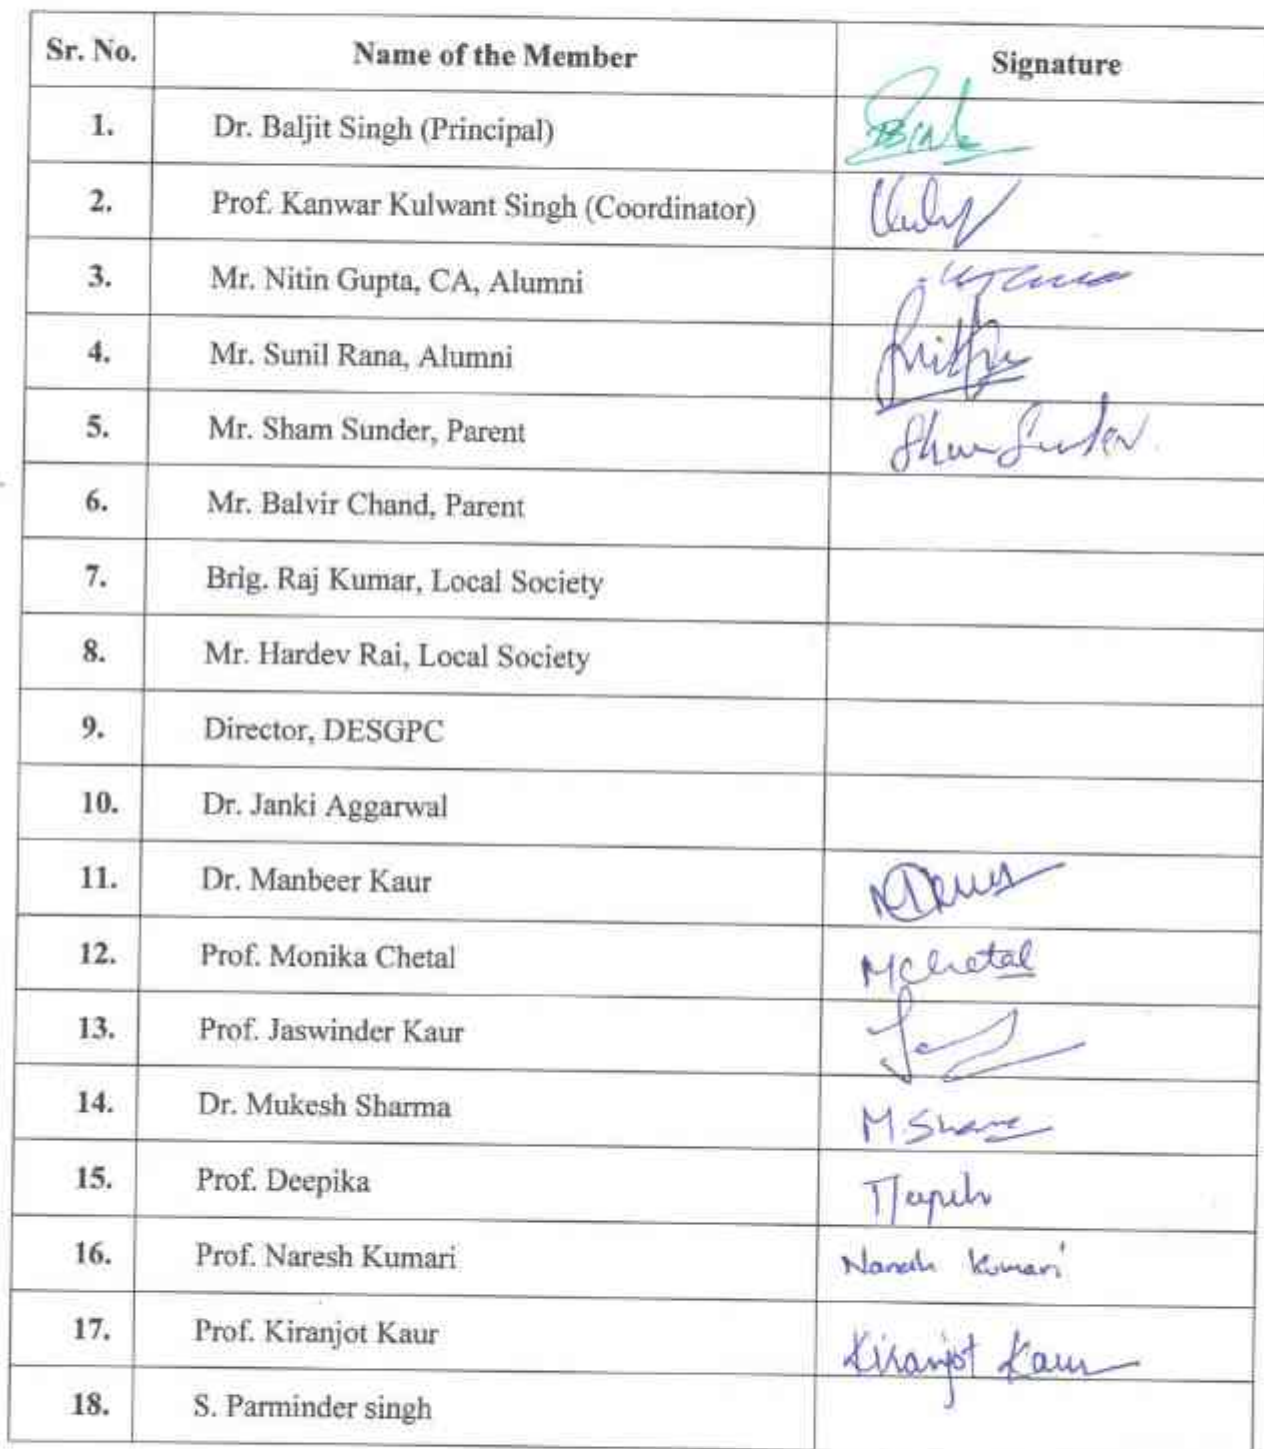 Sr. No. Name of the Member Signature
1. Dr. Baljit Singh (Principal)
2. Prof. Kanwar Kulwant Singh (Coordinator)
3. Mr. Nitin Gupta, CA, Alumni
4. Mr. Sunil Rana, Alumni
5. Mr. Sham Sunder, Parent Sham Sunder.
6. Mr. Balvir Chand, Parent
7. Brig. Raj Kumar, Local Society
8. Mr. Hardev Rai, Local Society
9. Director, DESGPC
10. Dr. Janki Aggarwal
11. Dr. Manbeer Kaur
12. Prof. Monika Chetal MChetal
13. Prof. Jaswinder Kaur
14. Dr. Mukesh Sharma M. Sharma
15. Prof. Deepika
16. Prof. Naresh Kumari Naresh Kumari
17. Prof. Kiranjot Kaur Kiranjot Kaur
18. S. Parminder singh